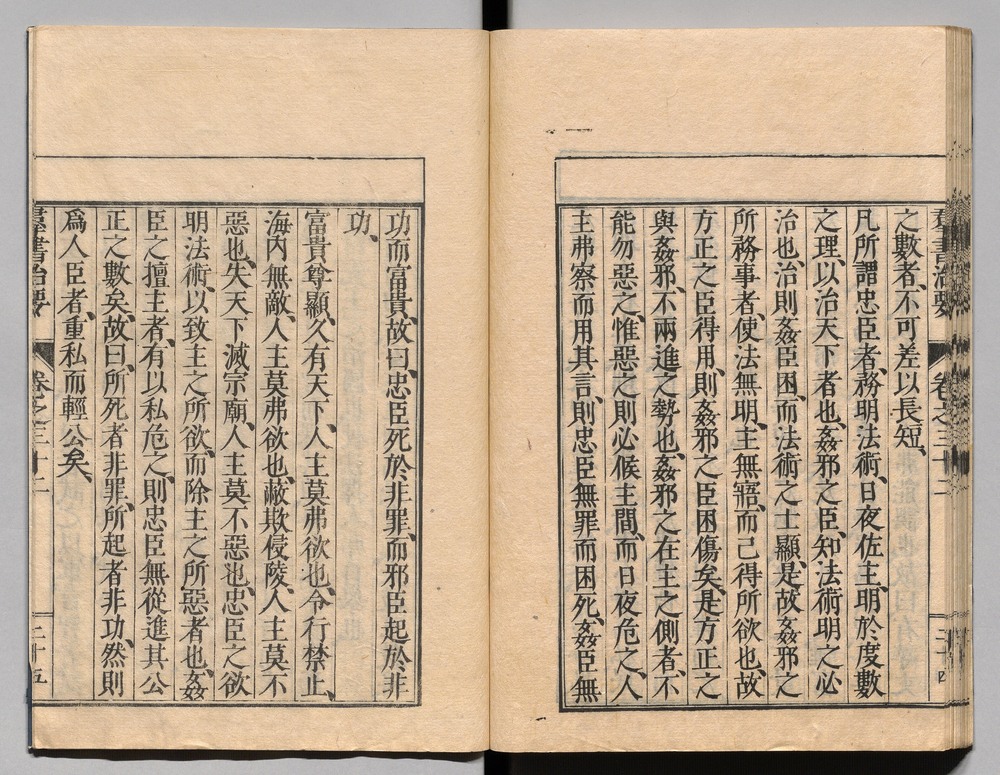 羣書治要 卷之三十二 二十四
之數者、不可差以長短、
凡所謂忠臣者、務明法術、日夜佐主、明於度數
之理、以治天下者也、姦邪之臣、知法術明之必
治也、治則姦臣困、而法術之士顯、是故姦邪之
所務事者、使法無明、主無寤、而己得所欲也、故
方正之臣得用、則姦邪之臣困傷矣、是方正之
與姦邪、不兩進之勢也、姦邪之在主之側者、不
能勿惡之、惟惡之、則必候主間、而日夜危之、人
主弗察而用其言、則忠臣無罪而困死、姦臣無
功而富貴、故曰、忠臣死於非罪、而邪臣起於非
功、
富貴尊顯、久有天下、人主莫弗欲也、令行禁止、
海內無敵、人主莫弗欲也、蔽欺侵陵、人主莫不
惡也、失天下、滅宗廟、人主莫不惡也、忠臣之欲
明法術、以致主之所欲、而除主之所惡者也、姦
臣之擅主者、有以私危之、則忠臣無從進其公
正之數矣、故曰、所死者非罪、所起者非功、然則
爲人臣者、重私而輕公矣、
羣書治要 卷之三十二 二十五